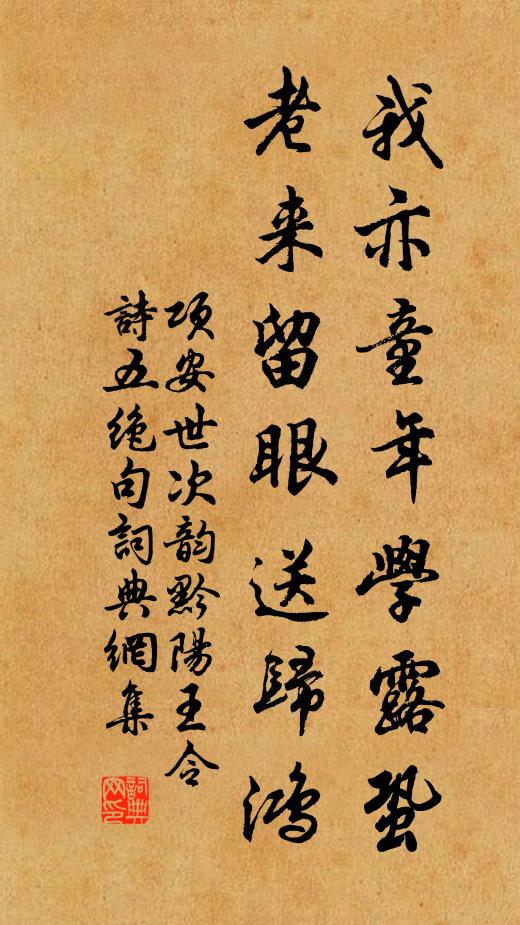 我亦童年學露蛩
老来留眼送歸鴻
項安世次韵黔陽王令
詩五绝句詞典網集
詞典
网印